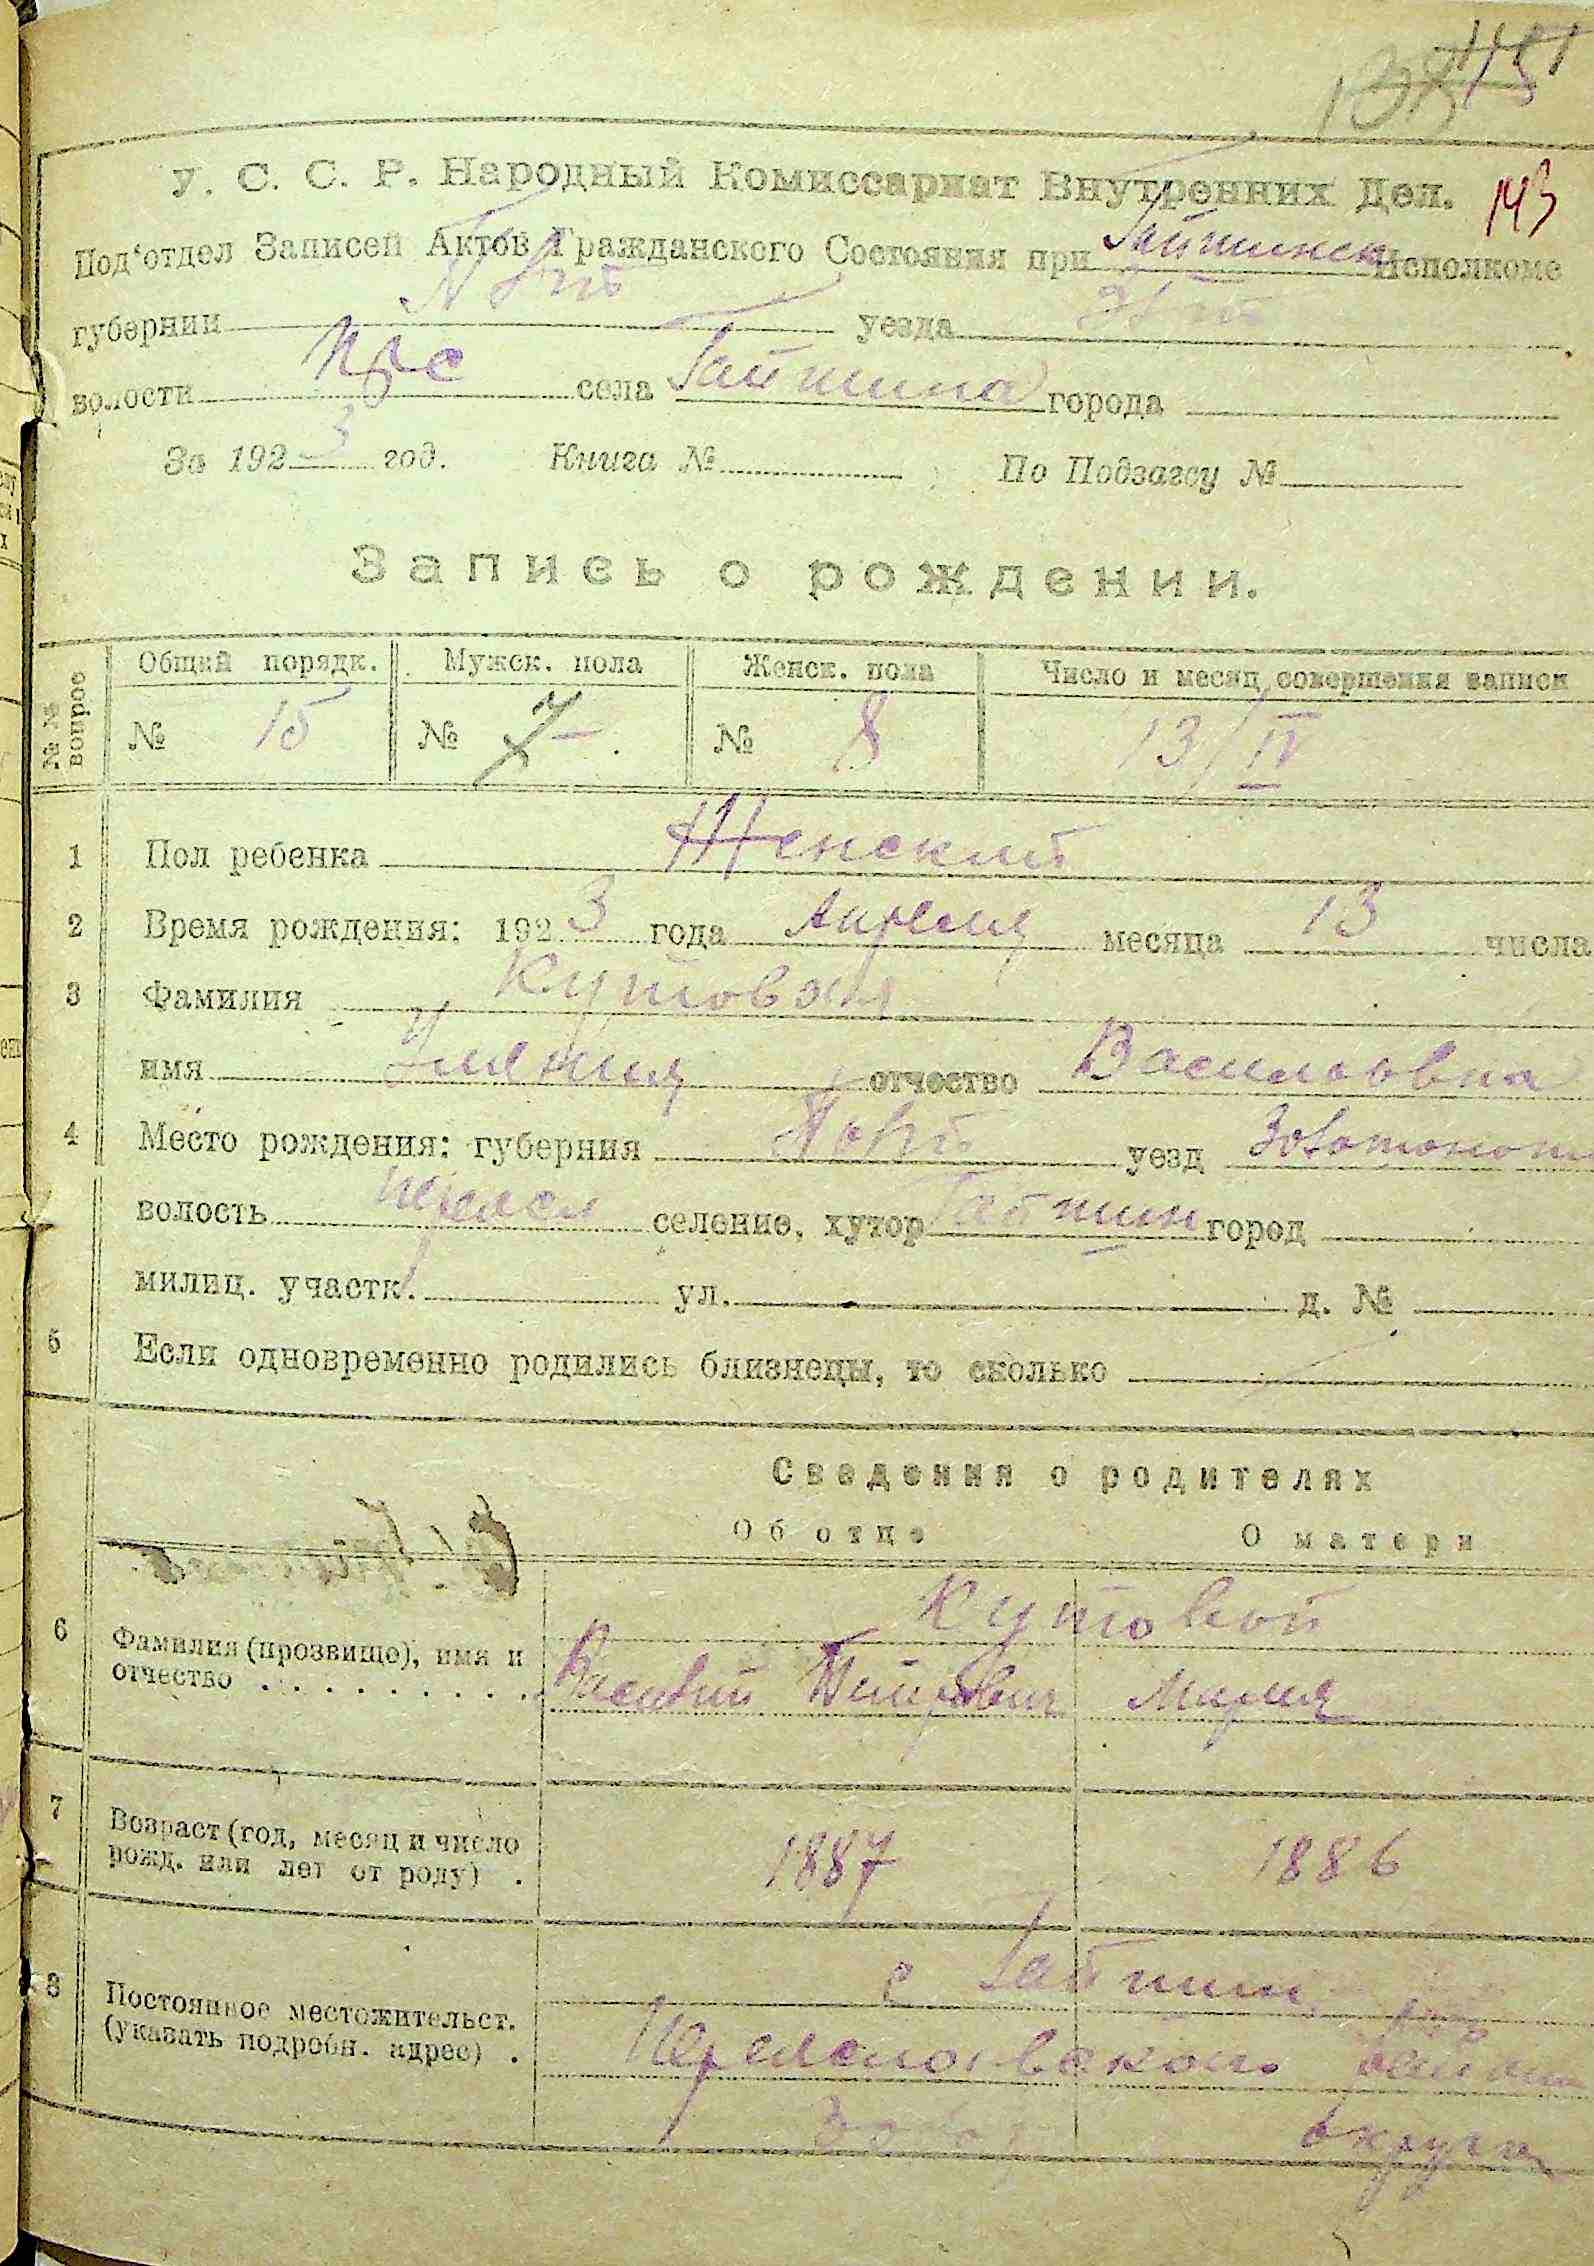 143
У. С. С. Р. Народный Комиссариат Внутренних Дел.
Под'отдел Записей Актов Гражданского Состояния при Гайшинск Исполкоме
губернии уезда
волости села Гайшина города
За 1923 год. Книга № По Подзагсу №
Запись о рождении.
№№ вопрос Общий порядк. Мужск. пола Женск. пола Число и месяц совершения записи
№ 15 № № 8 13/IV
1 Пол ребенка Женский
2 Время рождения: 1923 года Апреля месяца 13 числа
3 Фамилия Кутовая
имя отчество Васильовна
4 Место рождения: губерния уезд Золотонош
волость селение, хутор Гайшин город
милиц. участк. ул. д. №
5 Если одновременно родились близнецы, то сколько
Сведения о родителях
Об отце О матери
6 Фамилия (прозвище), имя и отчество Кутовой
Василий Мария
7 Возраст (год, месяц и число рожд. или лет от роду) 1887 1886
8 Постоянное местожительст. (указать подробн. адрес) с Гайшин
округи